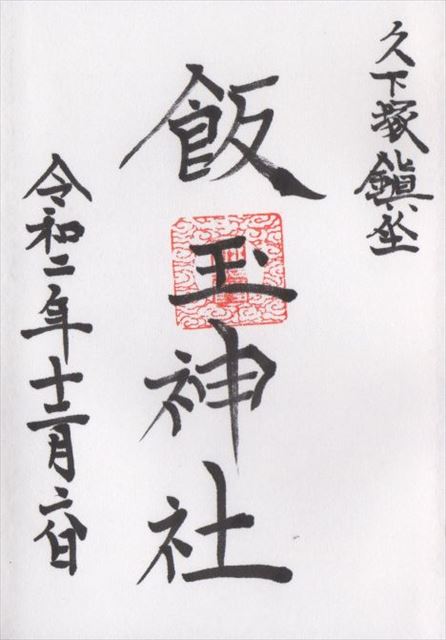 久下塚鎮坐
飯玉神社
令和二年十二月六日